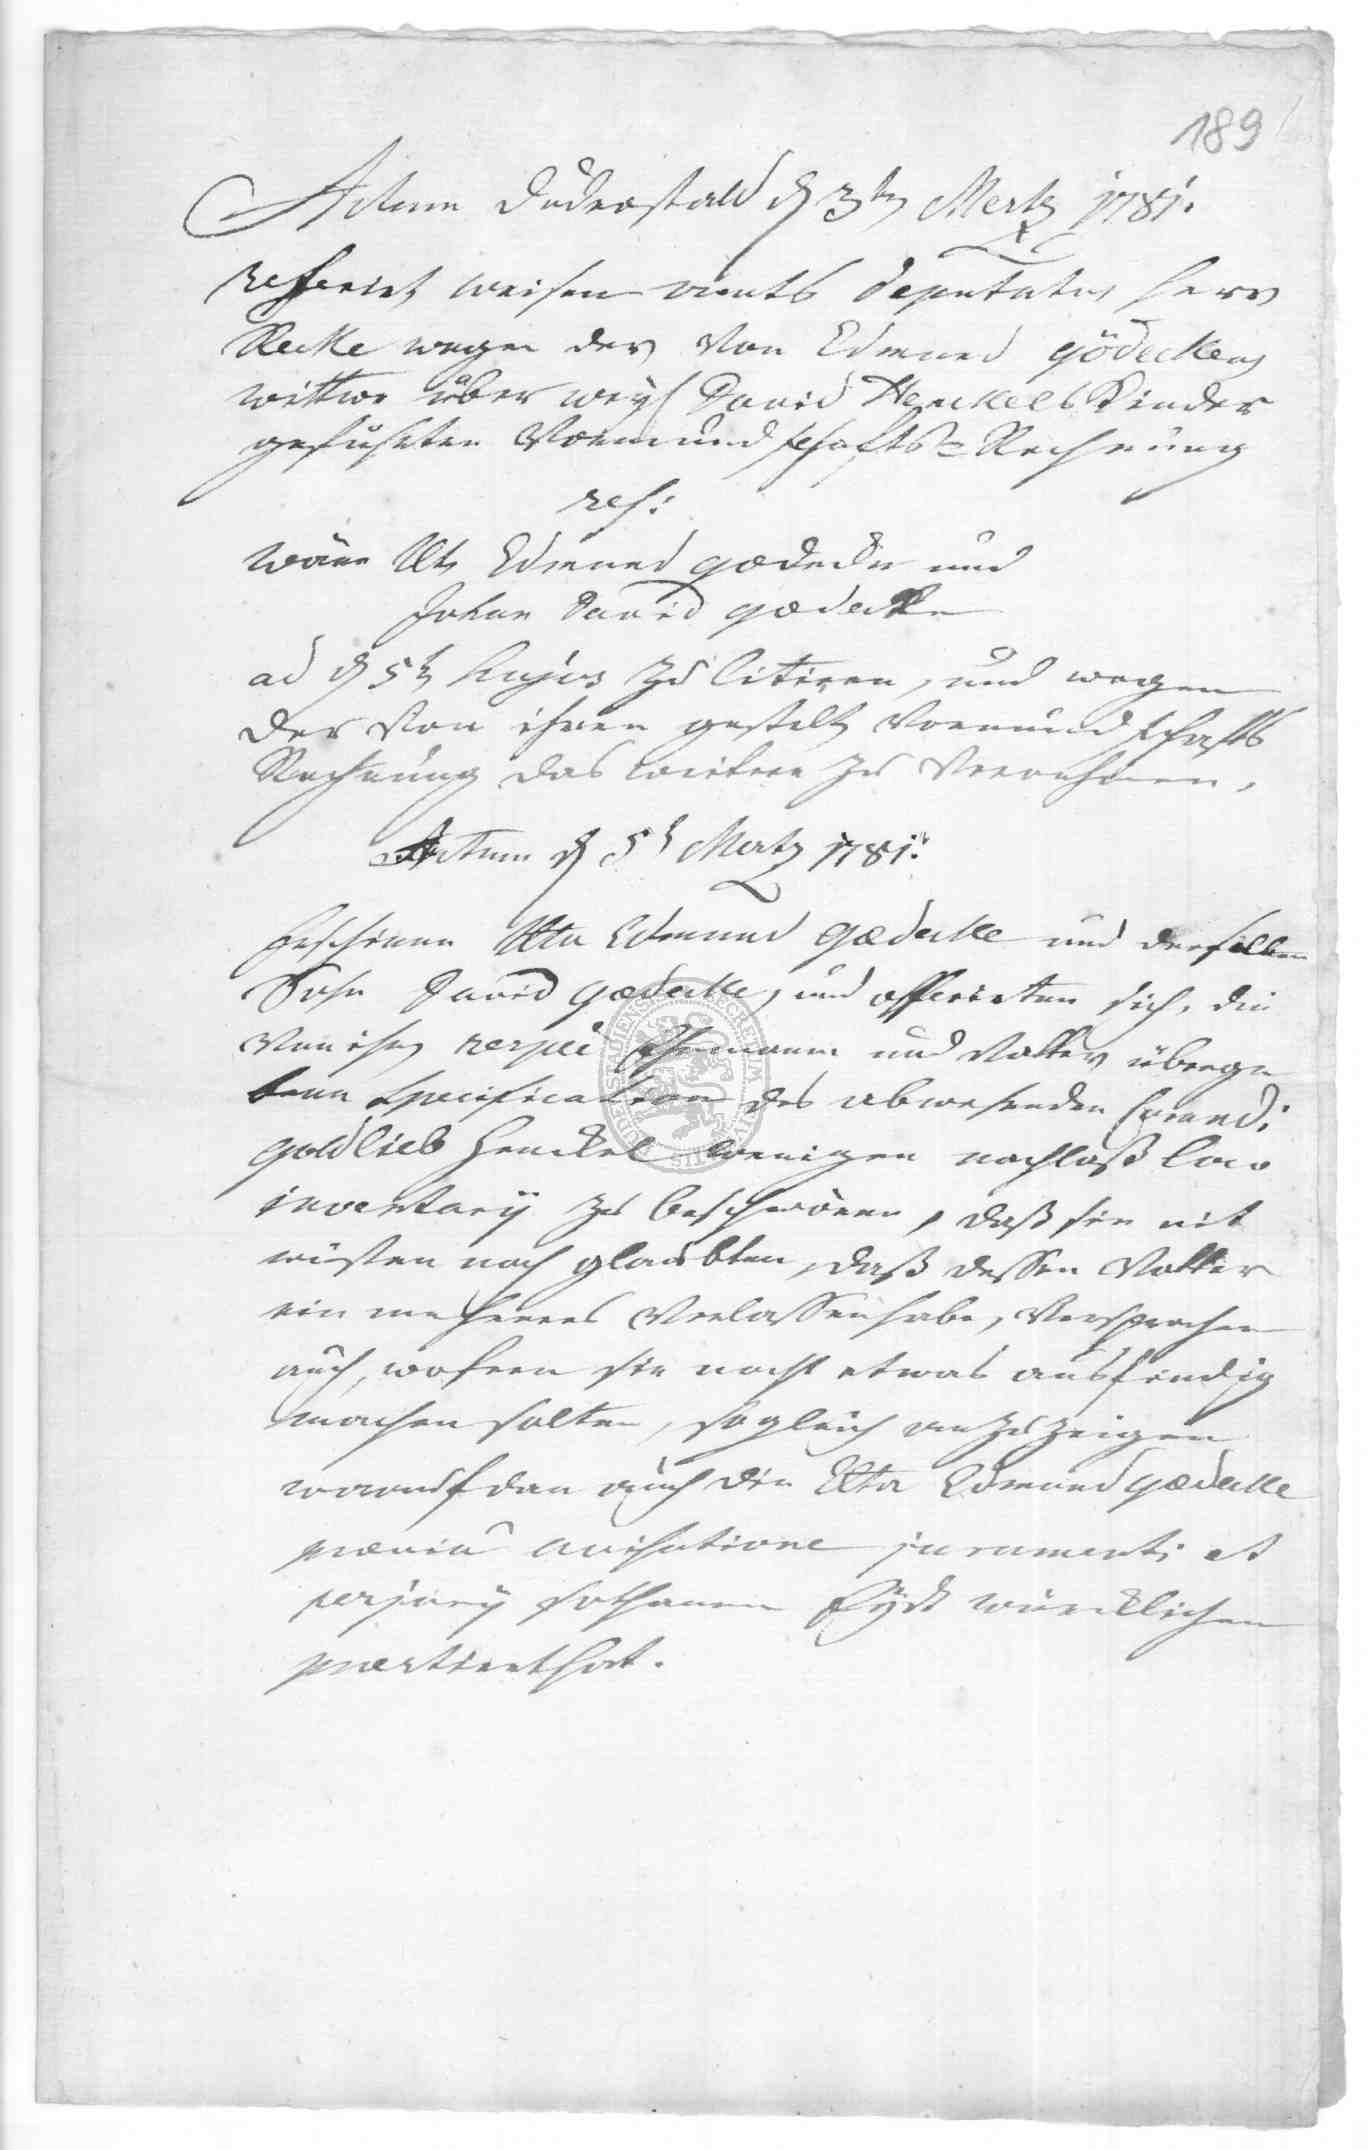 189
Actum Duderstadt d 3ten Mertz 1781.
Referirt weisen amts Deputatus Herr
Recke wegen der von Edmund Gödecken
wittwe über weyl David Henckels Kinder
geführten Vormundschafts-Rechnung
res:
wäre Uta Edmund Gædecke und
Johan David Gædecke
ad d 5t hujus zu Citiren, und wegen
der von ihnen gestelt Vormundschafts
Rechnung das weitere zu Vernehmen.
Actum d 5t Mertz 1781.
Erschienen Uta Edmund Gædecke und derselben
Sohn David Gædecke, und offerirten sich, die
Von ihren respe Ehemann und Vatter überge
bene Specification des abwesenden Curandi
Gottlieb Henckel wenigen nachlaß loco
inventarij zu beschwören, daß sie nit
wüsten noch glaubten, daß dessen Vatter
ein mehreres Verlassen habe, Versprachen
auch, wofern sie nocht etwas ausfindig
machen solten, sogleich anzuzeigen
worauf dan auch die Uta Edmund Gædecke
prævia avisatione juramenti et
perjurij sothanen Eydt würcklichen
præstirt hat.